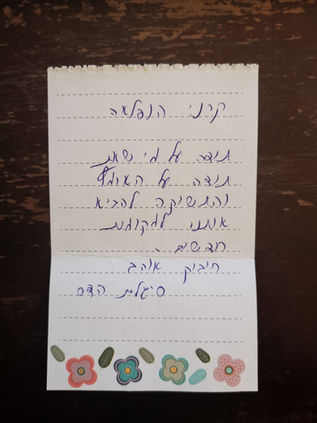 קרני הנפלאה
תודה על מי שאת
תודה על האומץ
והתשוקה להביא
אותנו למקומות
חדשים.
חיבוק אוהב
סיגלית הדס